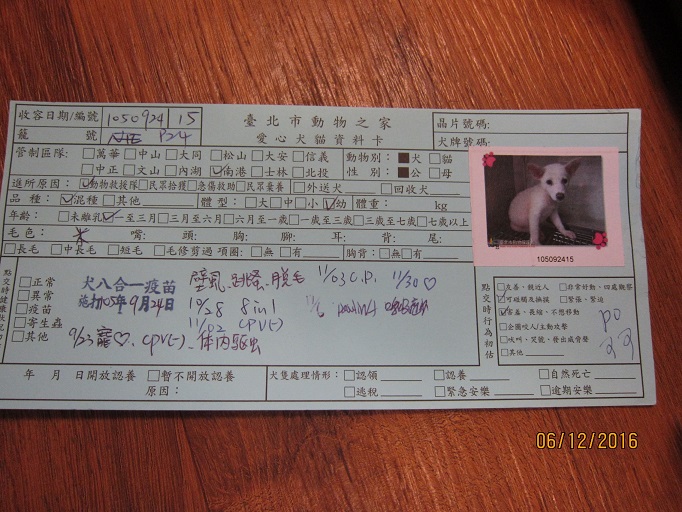 收容日期/編號 1050924 15
臺北市動物之家
晶片號碼:
籠 號 P24
愛心犬貓資料卡
犬牌號碼:
管制區隊: □萬華 □中山 □大同 □松山 □大安 □信義 動物別: ■犬 □貓
□中正 □文山 □內湖 ☑南港 □士林 □北投 性 別: ■公 □母
進所原因: ☑動物救援隊 □民眾拾獲 □急傷救助 □民眾棄養 □外送犬 □回收犬
品 種: ☑混種 □其他 體 型: □大 □中 □小 ☑幼 體重: kg
年齡: □未離乳 ☑一至三月 □三月至六月 □六月至一歲 □一歲至三歲 □三歲至七歲 □七歲以上
毛色: 米 嘴: 頭: 胸: 腳: 耳: 背: 尾:
□長毛 □中長毛 □短毛 □毛修剪過 項圈: □無 □有 胸背: □無 □有
105092415
點交時健康狀況初
□正常
□異常
□疫苗
□寄生蟲
□其他
犬八合一疫苗
施打105年9月24日
壁蝨、跳蚤、脫毛
11/03 C.P. 11/30♡
10/28 8 in 1
11/02 CPV(-)
9/23 寵♡. CPV(-). 体內驅虫
點交時行為初估
□友善、親近人 □非常好動、四處觀察
□可碰觸及撫摸 □緊張、緊迫
☑害羞、畏縮、不想移動
□企圖咬人/主動攻擊
□吠叫、哭號、發出威脅聲
□其他
PO
可可
年 月 日開放認養 □暫不開放認養 犬隻處理情形: □認領 □認養 □自然死亡
原因: □逃脫 □緊急安樂 □逾期安樂
06/12/2016